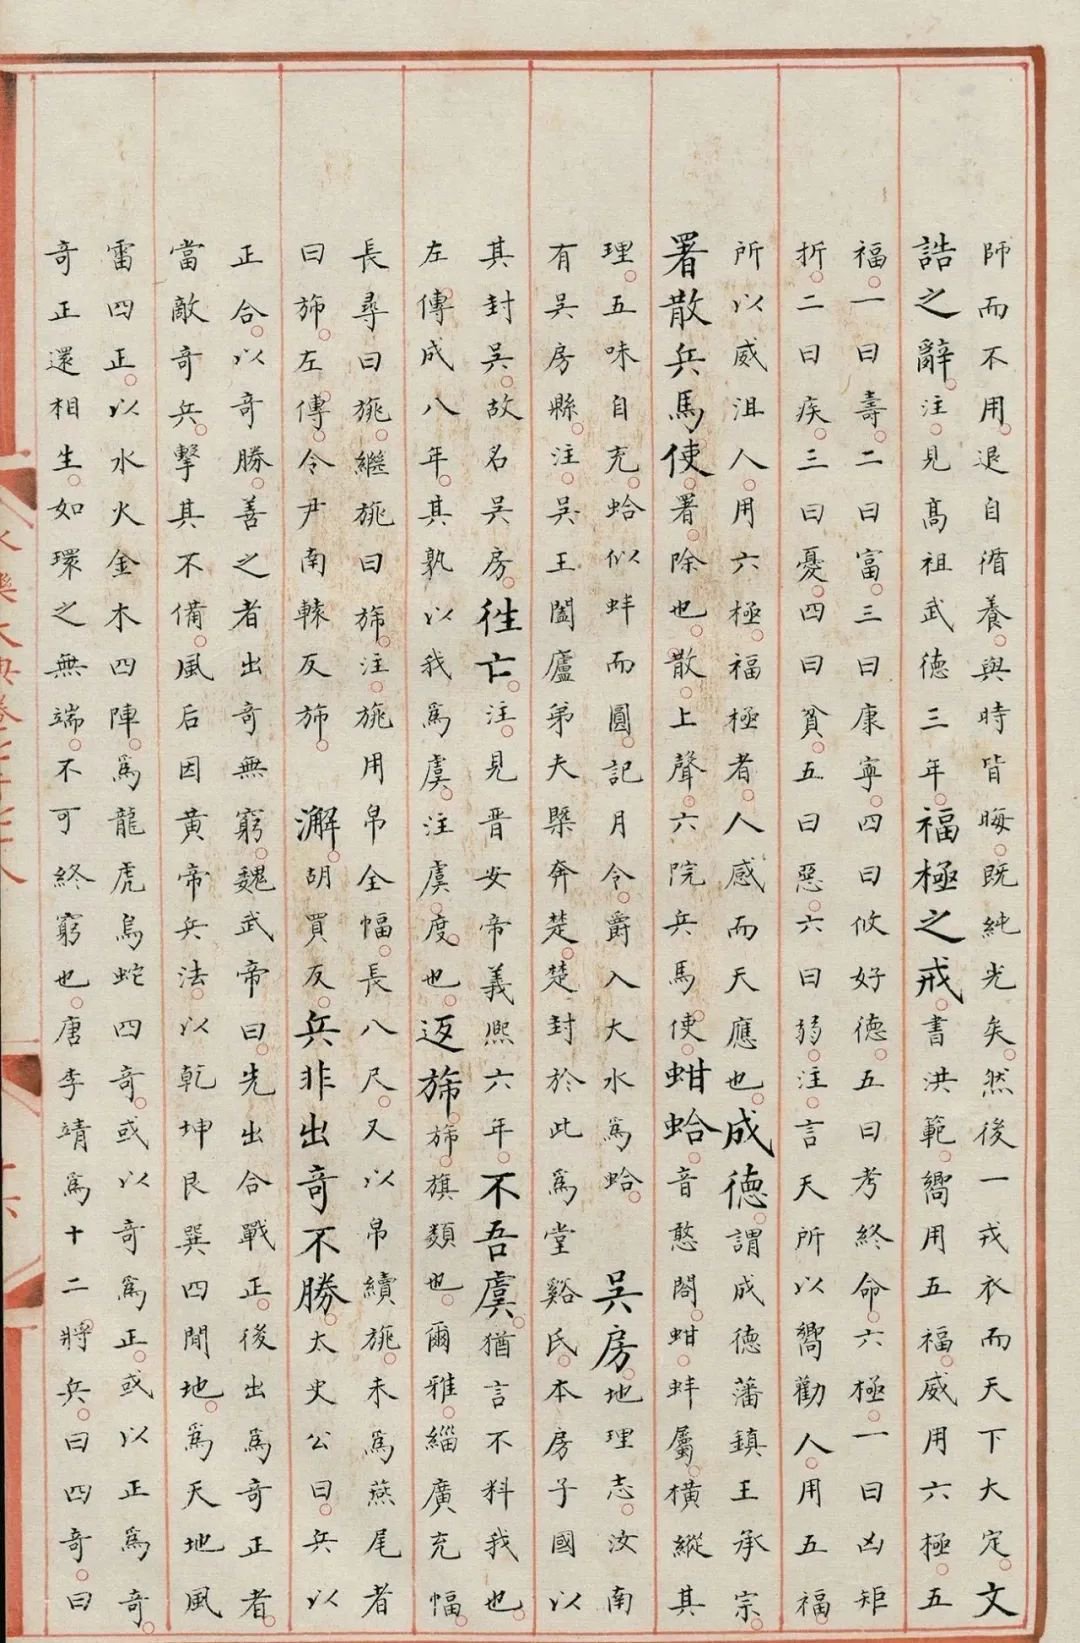 師而不用。退自循養。與時皆晦。既純光矣。然後一戎衣而天下大定。文
誥之辭。注見高祖武德三年。福極之戒。書洪範。嚮用五福。威用六極。五
福。一曰壽。二曰富。三曰康寧。四曰攸好德。五曰考終命。六極。一曰凶短
折。二曰疾。三曰憂。四曰貧。五曰惡。六曰弱。注。言天所以嚮勸人。用五福。
所以威沮人。用六極。福極者。人感而天應也。成德。謂成德藩鎮王承宗。
署散兵馬使。署。除也。散。上聲。六院兵馬使。蚶蛤。音憨閤。蚶。蚌屬。橫縱其
理。五味自充。蛤似蚌而圓。記月令。爵入大水為蛤。 吳房。地理志。汝南
有吳房縣。注。吳王闔廬弟夫槩奔楚。楚封於此為堂谿氏。本房子國。以
其封吳。故名吳房。徃亡。注。見晋安帝義熙六年。不吾虞。猶言不料我也。
左傳成八年。其孰以我為虞。注虞。度也。返斾。斾。旗類也。爾雅。緇廣充幅。
長尋曰旐。繼旐曰斾。注。旐用帛全幅。長八尺。又以帛續旐。未為燕尾者
曰斾。左傳。令尹南轅反斾。 澥。胡買反。兵非出奇不勝。太史公曰。兵以
正合。以奇勝。善之者出奇無窮。魏武帝曰。先出合戰正。後出為奇正者。
當敵奇兵。擊其不備。風后因黃帝兵法。以乾坤艮巽四閒地。為天地風
雷四正。以水火金木四陣。為龍虎鳥蛇四奇。或以奇為正。或以正為奇。
奇正還相生。如環之無端。不可終窮也。唐李靖為十二將兵。曰四奇。曰